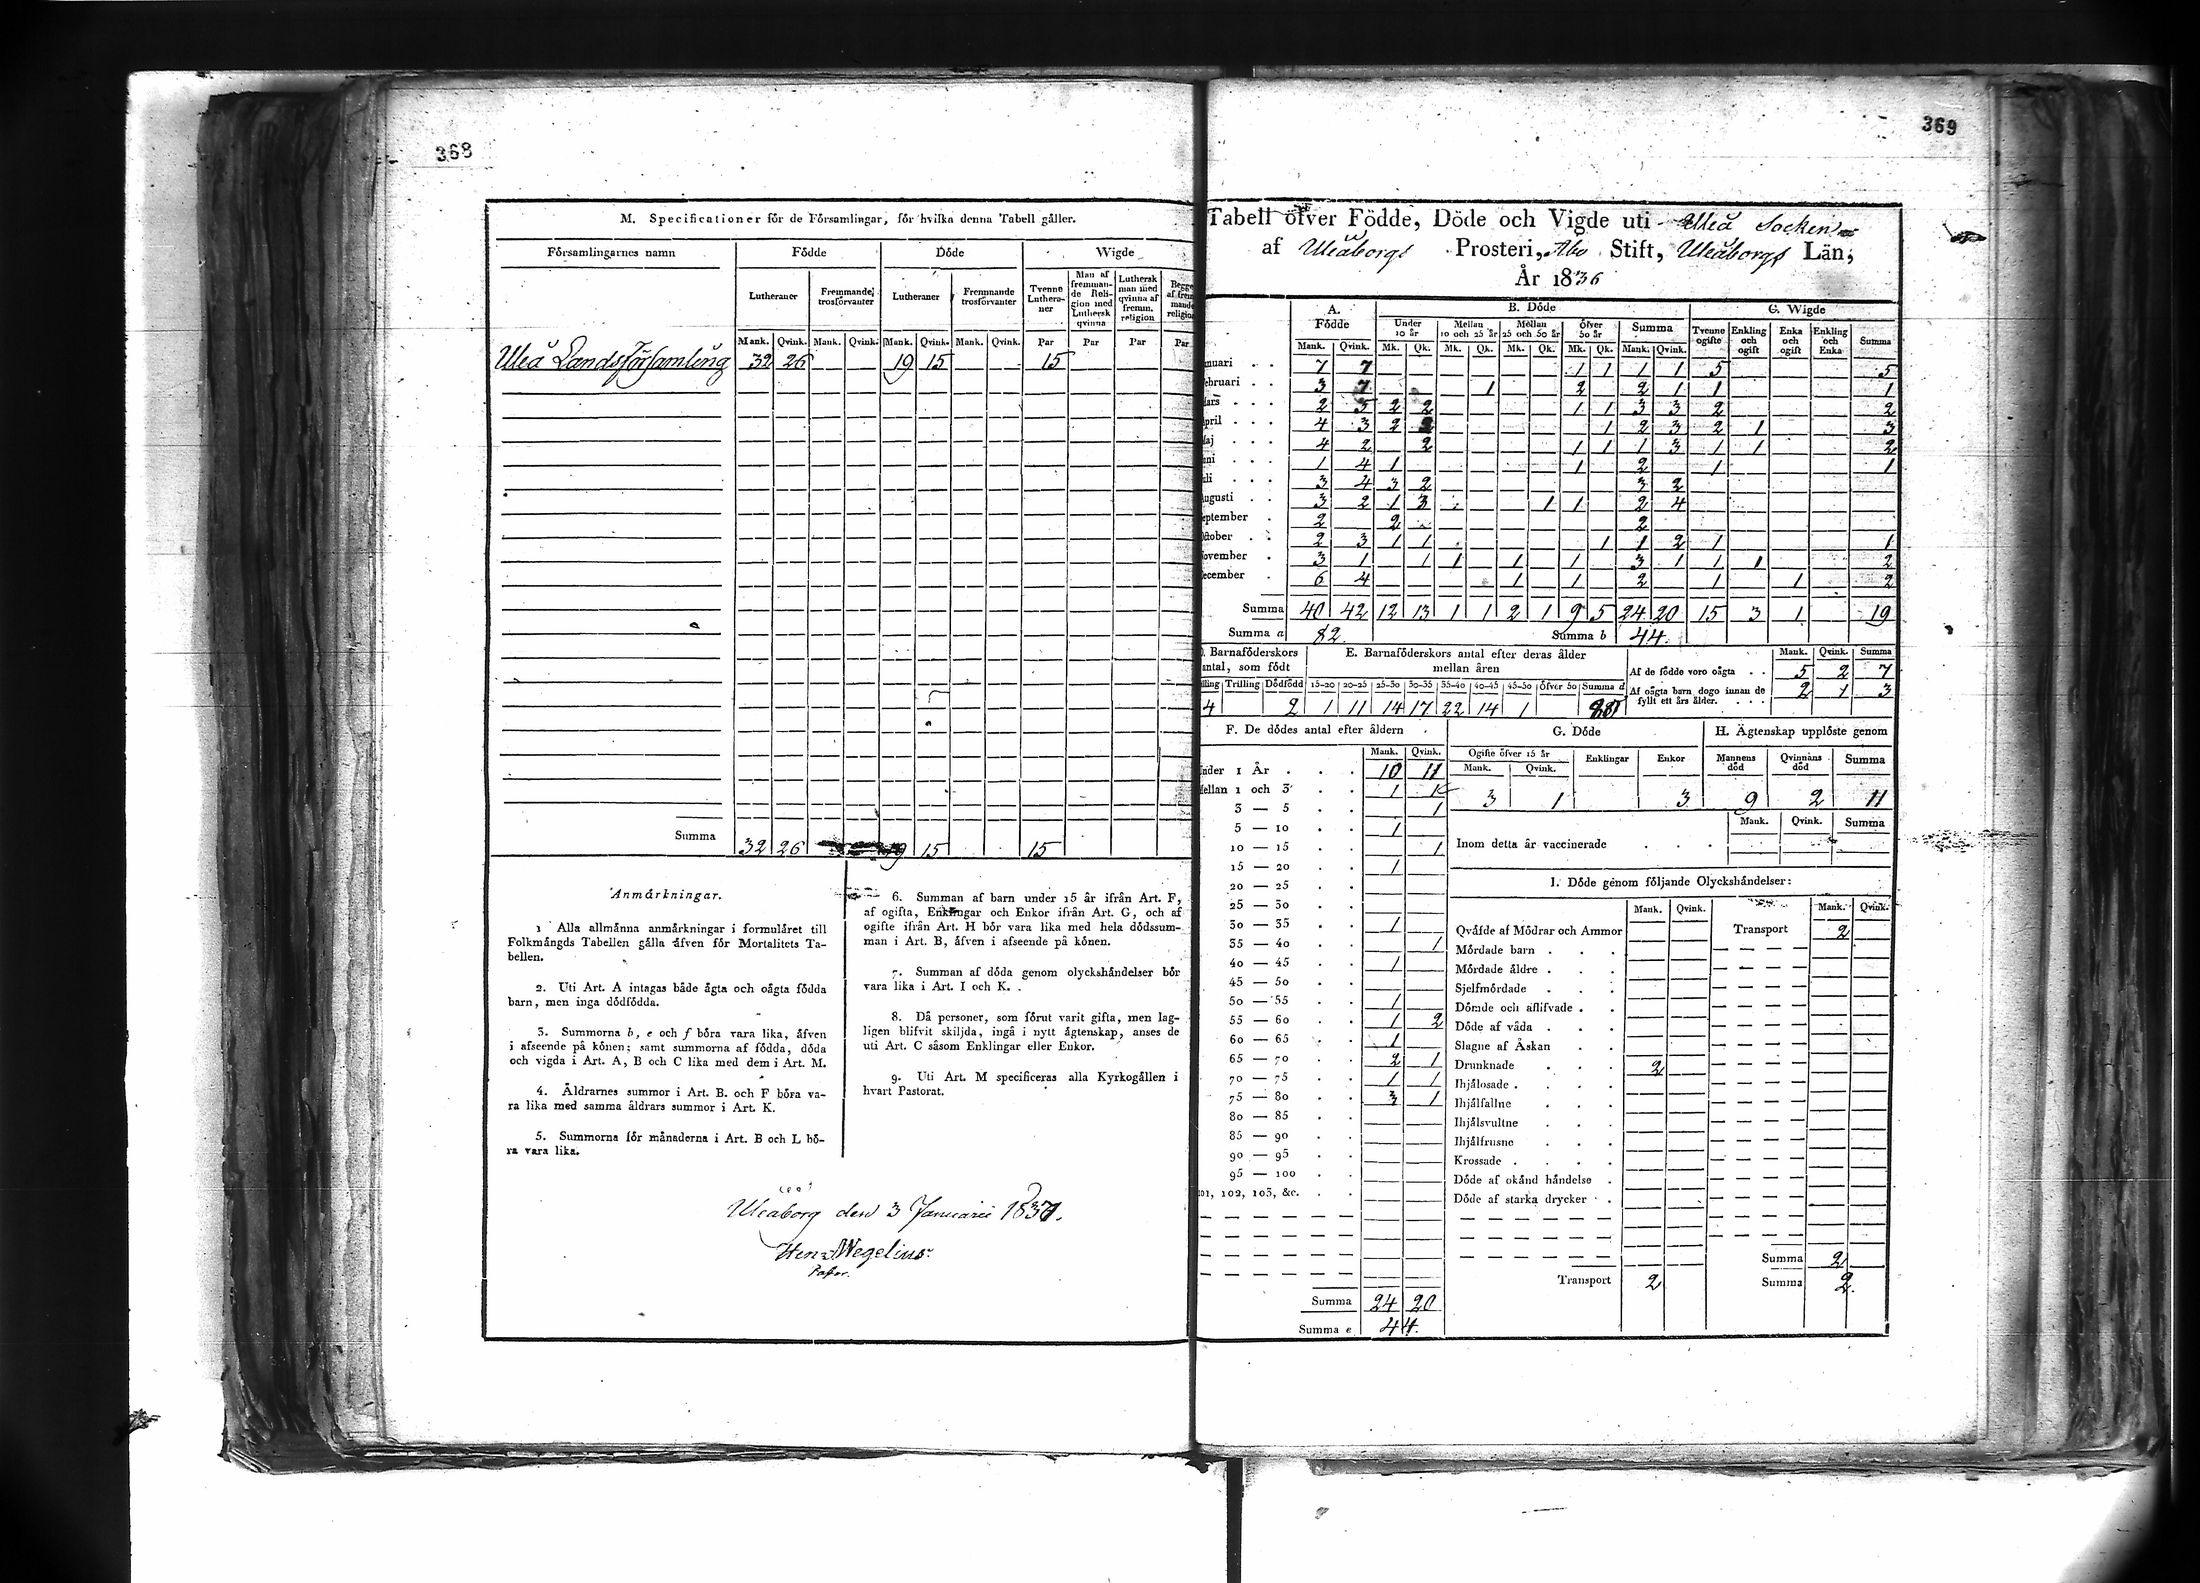 368
M. Specificationer för de Församlingar, för hvilka denna Tabell gäller.
Församlingarnes namn Födde Döde Wigde
Lutheraner Fremmande trosförvanter Lutheraner Fremmande trosförvanter Tvenne Lutheraner Man af fremmande Religion med Luthersk qvinna Luthersk man med qvinna af fremm. religion Begge af frem mande religion
Mank. Qvink. Mank. Qvink. Mank. Qvink. Mank. Qvink. Par Par Par Par
Uleå Landsförsamling 32 26 19 15 15
Summa 32 26 19 15 15
Anmärkningar.
1 Alla allmänna anmärkningar i formuläret till
Folkmängds Tabellen gälla äfven för Mortalitets Ta-
bellen.
2. Uti Art. A intagas både ägta och oägta födda
barn, men inga dödfödda.
3. Summorna b, e och f böra vara lika, äfven
i afseende på könen; samt summorna af födda, döda
och vigda i Art. A, B och C lika med dem i Art. M.
4. Åldrarnes summor i Art. B. och F böra va-
ra lika med samma åldrars summor i Art. K.
5. Summorna för månaderna i Art. B och L bö-
ra vara lika.
6. Summan af barn under 15 år ifrån Art. F,
af ogifta, Enklingar och Enkor ifrån Art. G, och af
ogifte ifrån Art. H bör vara lika med hela dödssum-
man i Art. B, äfven i afseende på könen.
7. Summan af döda genom olyckshändelser bör
vara lika i Art. I och K.
8. Då personer, som förut varit gifta, men lag-
ligen blifvit skiljda, ingå i nytt ägtenskap, anses de
uti Art. C såsom Enklingar eller Enkor.
9. Uti Art. M specificeras alla Kyrkogällen i
hvart Pastorat.
Uleåborg den 3 Januarii 1837.
Wegelius
369
Tabell öfver Födde, Döde och Vigde uti Uleå Socken
af Uleåborgs Prosteri, Åbo Stift, Uleåborgs Län,
År 1836
A. Födde B. Döde G. Wigde
Under 10 år Mellan 10 och 25 år Mellan 25 och 50 år Öfver 50 år Summa Tvenne ogifte Enkling och ogift Enka och ogift Enkling och Enka Summa
Mank. Qvink. Mk. Qk. Mk. Qk. Mk. Qk. Mk. Qk. Mank. Qvink.
nuari 7 7 1 1 1 1 5 5
ebruari 3 7 1 2 2 1 1 1
Mars 2 5 2 2 1 1 3 3 2 2
April 4 3 2 2 1 2 3 2 1 3
Maj 4 2 2 1 1 1 3 1 1 2
uni 1 4 1 1 2 1 1
uli 3 4 3 2 3 2
Augusti 3 2 1 3 1 1 2 4
eptember 2 2 2
October 2 3 1 1 1 1 2 1 1
ovember 3 1 1 1 1 1 3 1 1 1 2
ecember 6 4 1 1 2 1 1 2
Summa 40 42 12 13 1 1 2 1 9 5 24 20 15 3 1 19
Summa a 82 Summa b 44
D. Barnaföderskors antal, som födt
lling Trilling Dödfödd
4 2
E. Barnaföderskors antal efter deras ålder
mellan åren
15-20 20-25 25-30 30-35 35-40 40-45 45-50 Öfver 50 Summa d
1 11 14 17 22 14 1
Mank. Qvink. Summa
Af de födde voro oägta 5 2 7
Af oägta barn dogo innan de fyllt ett års ålder. 2 1 3
F. De dödes antal efter åldern
Mank. Qvink.
nder 1 År 10 11
ellan 1 och 3 1 1
3 — 5 1
5 — 10 1
10 — 15 1
15 — 20 1
20 — 25
25 — 30
30 — 35 1
35 — 40 1
40 — 45 1
45 — 50
50 — 55 1
55 — 60 1 2
60 — 65 1
65 — 70 2 1
70 — 75 1 1
75 — 80 3 1
80 — 85
85 — 90
90 — 95
95 — 100
101, 102, 103, &c.
Summa 24 20
Summa e 44
G. Döde
Ogifte öfver 15 år Enklingar Enkor
Mank. Qvink.
3 1 3
H. Ägtenskap upplöste genom
Mannens död Qvinnans död Summa
9 2 11
Mank. Qvink. Summa
Inom detta år vaccinerade
I. Döde genom följande Olyckshändelser:
Mank. Qvink. Mank. Qvink.
Qväfde af Mödrar och Ammor Transport 2
Mördade barn
Mördade äldre
Sjelfmördade
Dömde och aflifvade
Döde af våda
Slagne af Åskan
Drunknade 2
Ihjälosade
Ihjälfallne
Ihjälsvultne
Ihjälfrusne
Krossade
Döde af okänd händelse
Döde af starka drycker
Summa 2
Transport 2 Summa 2